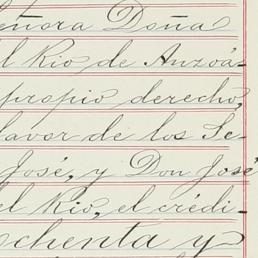 eñora Doña
l Rio de Anzoá-
propio derecho,
favor de los Se-
José, y Don José
el Rio, el crédi-
chenta y